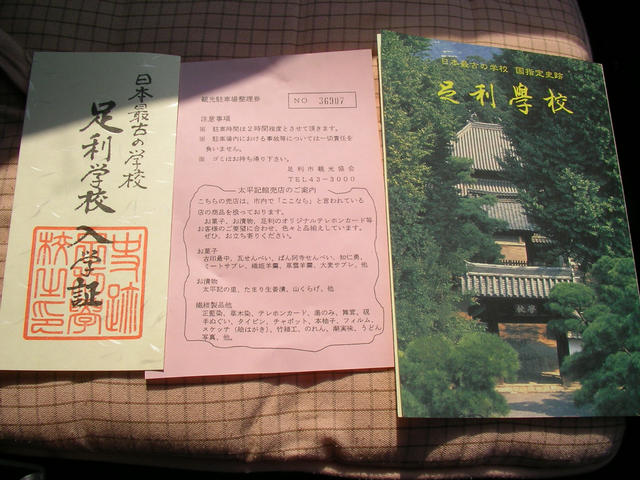 日本最古の学校
足利学校 入学証
史跡
足利学
校之印
観光駐車場整理券
NO 36907
注意事項
※ 駐車時間は2時間程度とさせて頂きます。
※ 駐車場内における事故等については一切責任を
負いません。
※ ゴミはお持ち帰り下さい。
足利市観光協会
TEL43-3000
太平記館売店のご案内
こちらの売店は、市内で「ここなら」と言われている
店の商品を扱っております。
お菓子、お漬物、足利のオリジナルテレホンカード等
お客様のご要望に合わせ、色々と品揃えしています。
ぜひ、お立ち寄りください。
お菓子
古印最中、瓦せんべい、ばん阿寺せんべい、知仁勇、
ミートサブレ、織姫羊羹、草雲羊羹、大麦サブレ、他
お漬物
太平記の里、たまり生姜漬、山くらげ、他
繊維製品他
正藍染、草木染、テレホンカード、湯のみ、舞宮、硯
手ぬぐい、タイピン、チャボット、本柚子、フィルム、
スケッチ(絵はがき)、竹細工、のれん、潮実味、うどん
写真、他。
日本最古の学校 国指定史跡
足利學校
學校